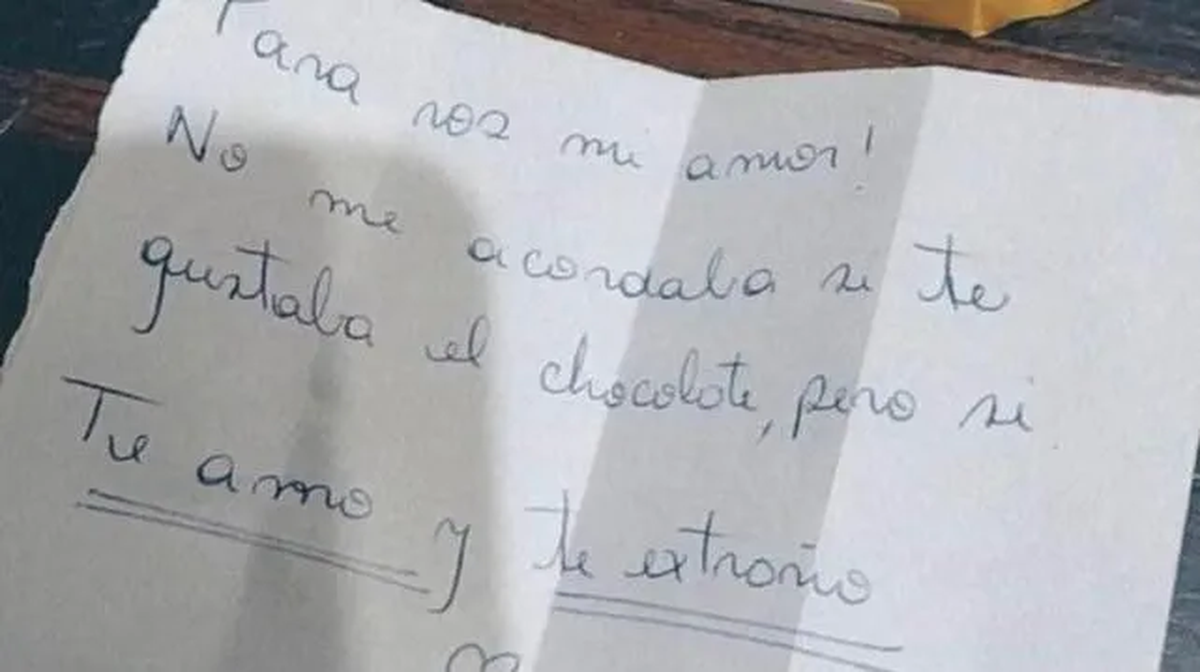 Para vos mi amor!
No me acordaba si te
gustaba el chocolate, pero si
Te amo y te extraño